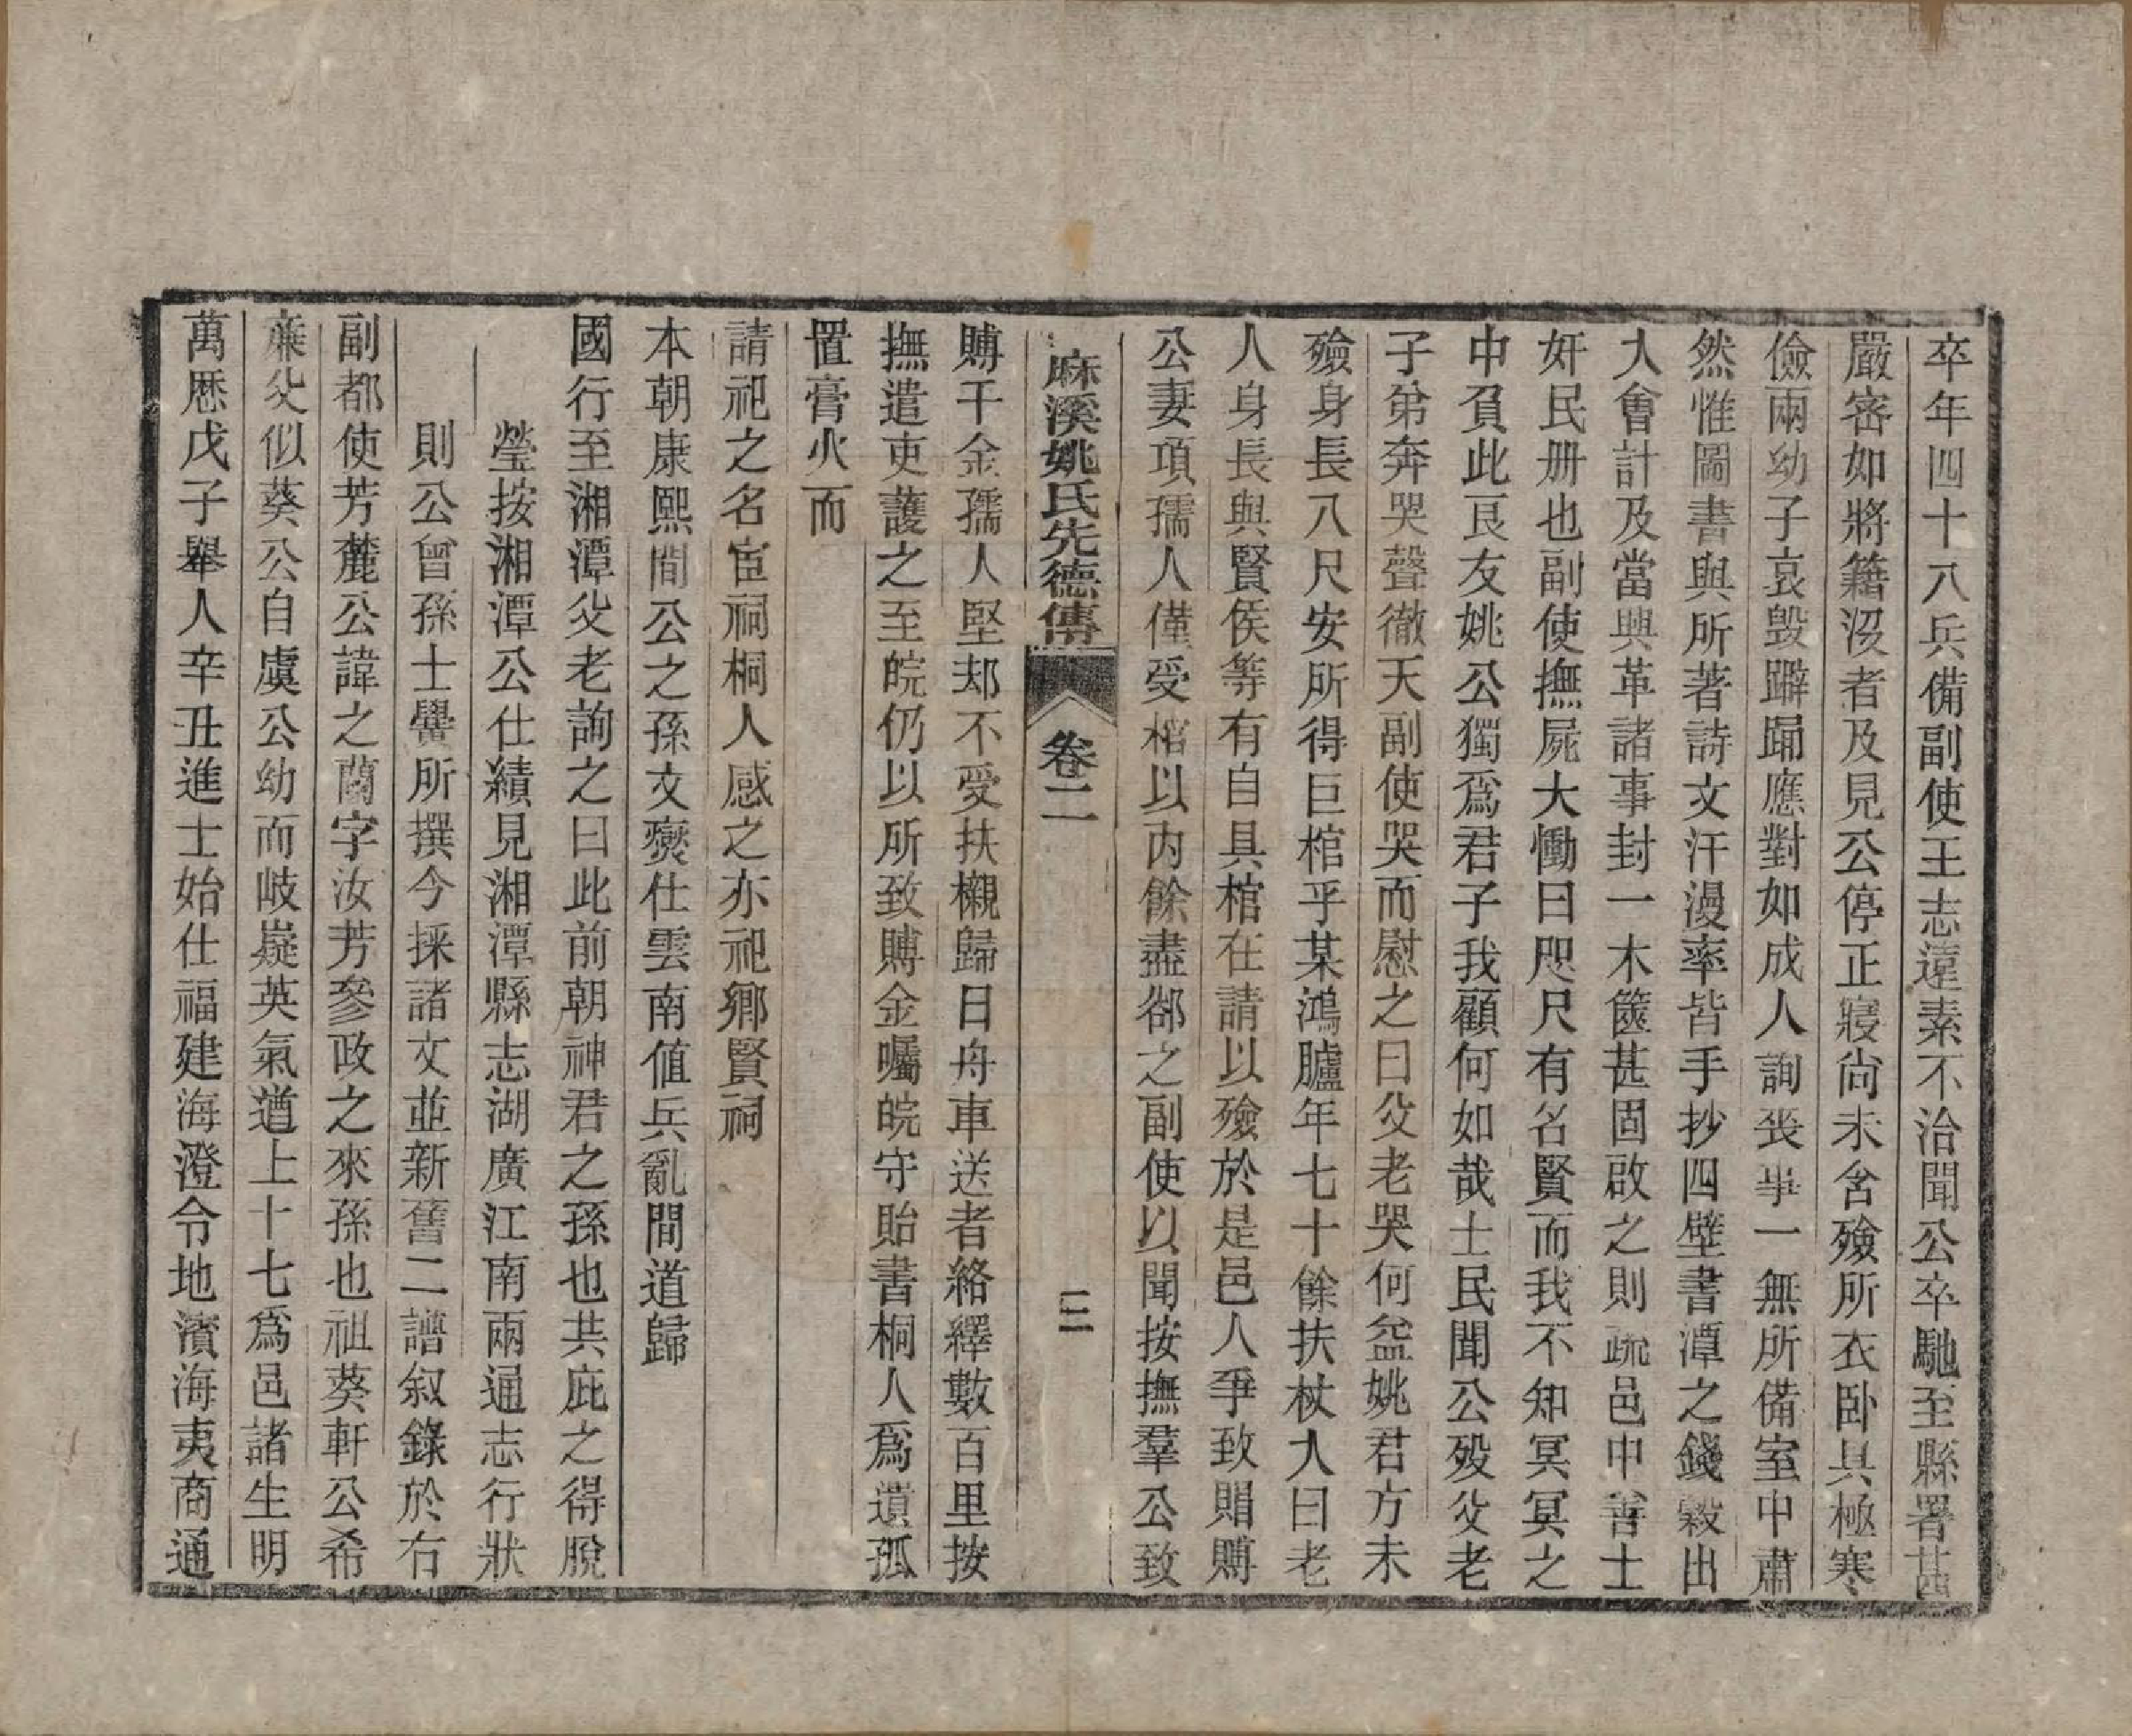 卒年四十八兵備副使王志遠素不洽聞公卒馳至縣署甚
嚴密如將籍沒者及見公停正寢尙未含殮所衣卧具極寒
儉兩幼子哀毀躃踊應對如成人詢喪事一無所備室中肅
然惟圖書與所著詩文汗漫率皆手抄四壁書潭之錢穀出
入會計及當興革諸事封一木篋甚固啟之則疏邑中善士
奸民册也副使撫屍大慟曰咫尺有名賢而我不知冥冥之
中負此良友姚公獨爲君子我顧何如哉士民聞公殁父老
子弟奔哭聲徹天副使哭而慰之曰父老哭何益姚君方未
殮身長八尺安所得巨棺乎某鴻臚年七十餘扶杖入曰老
人身長與賢侯等有自具棺在請以殮於是邑人爭致賵賻
公妻項孺人僅受棺以內餘盡郤之副使以聞按撫羣公致
麻溪姚氏先德傳 卷二 三
賻千金孺人堅却不受扶櫬歸日舟車送者絡繹數百里按
撫遣吏護之至皖仍以所致賻金囑皖守貽書桐人爲遺孤
置膏火而
請祀之名宦祠桐人感之亦祀鄉賢祠
本朝康熙間公之孫文燮仕雲南值兵亂間道歸
國行至湘潭父老詢之曰此前朝神君之孫也共庇之得脫
瑩按湘潭公仕績見湘潭縣志湖廣江南兩通志行狀
則公曾孫士黌所撰今採諸文並新舊二譜叙錄於右
副都使芳麓公諱之蘭字汝芳參政之來孫也祖葵軒公希
廉父似葵公自虞公幼而岐嶷英氣遒上十七爲邑諸生明
萬歷戊子舉人辛丑進士始仕福建海澄令地濱海夷商通